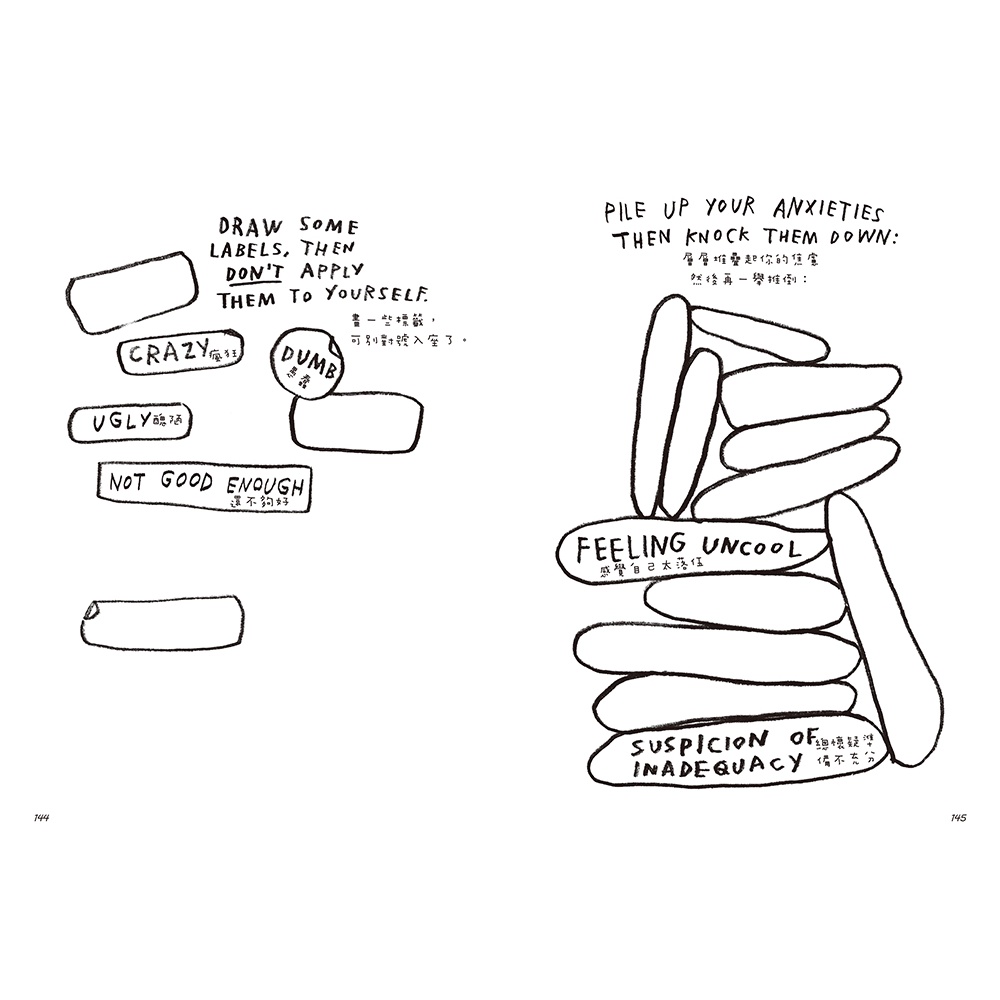 DRAW SOME
LABELS, THEN
DON'T APPLY
THEM TO YOURSELF.
畫一些標籤，
可別對號入座了。
CRAZY瘋狂
DUMB
愚蠢
UGLY醜陋
NOT GOOD ENOUGH
還不夠好
144
PILE UP YOUR ANXIETIES
THEN KNOCK THEM DOWN:
層層堆疊起你的焦慮
然後再一舉推倒：
FEELING UNCOOL
感覺自己太落伍
SUSPICION OF總懷疑準
INADEQUACY 備不充分
145